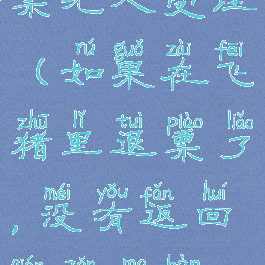 rú guǒ zài fēi
（如果在飞
zhū lǐ tuì piào liǎo
猪里退票了
méi yǒu fǎn huí
，没有返回